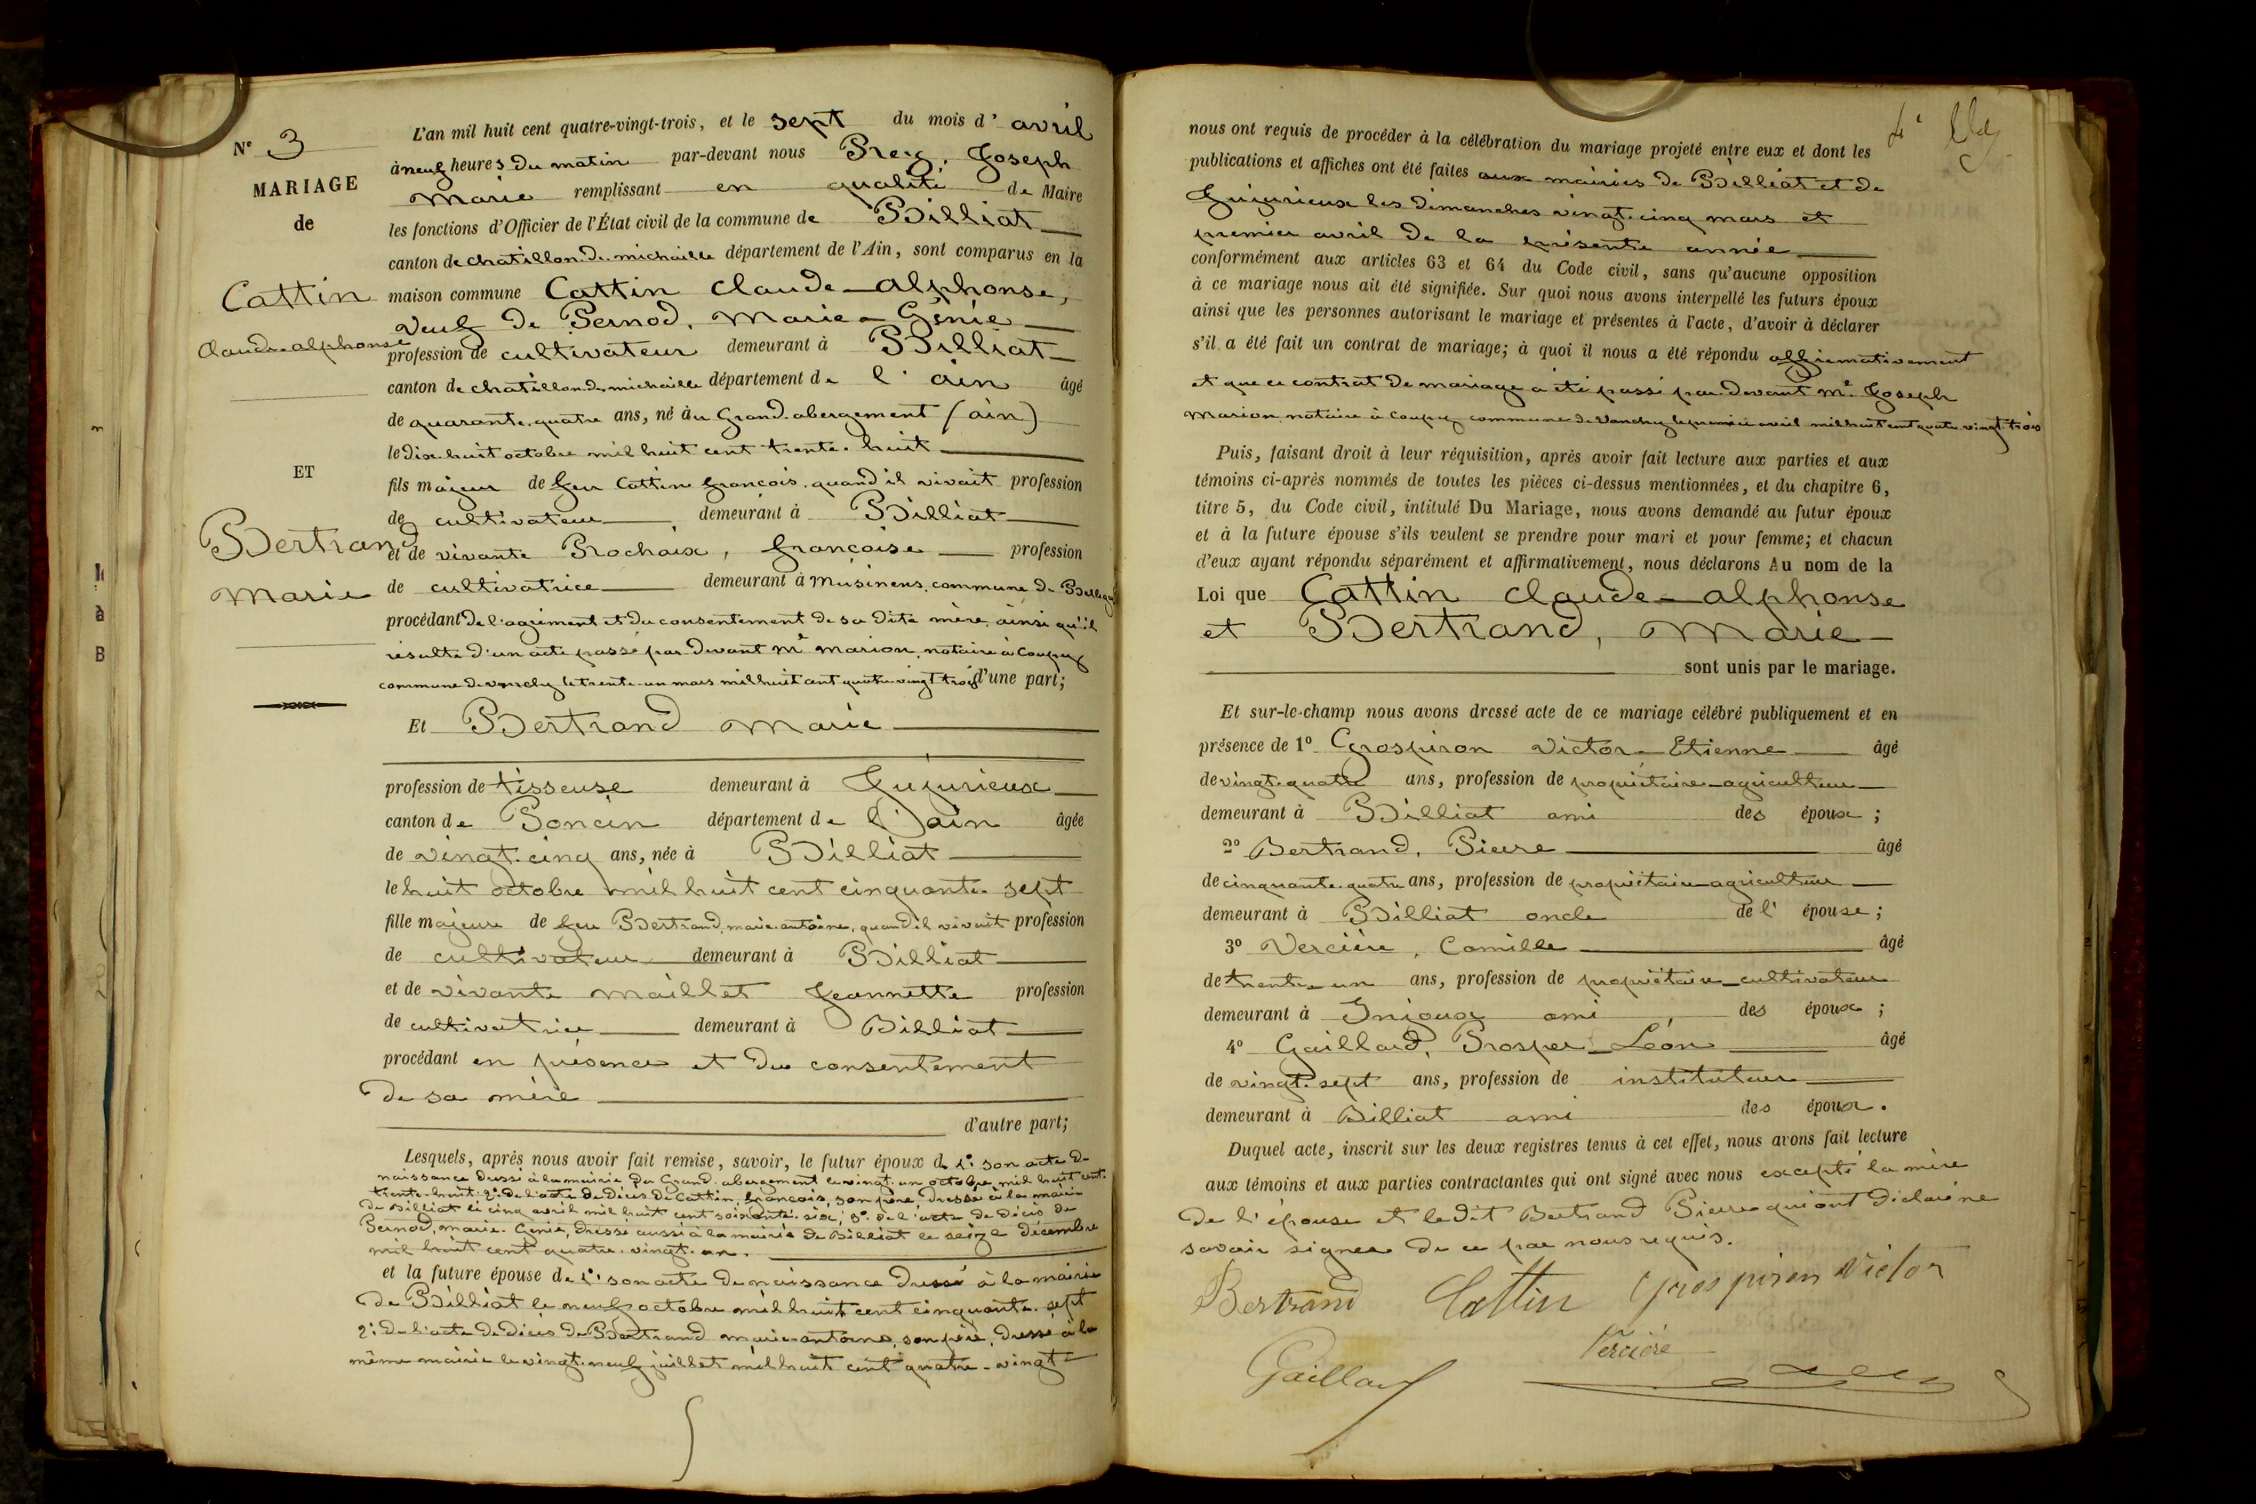 N° 3
MARIAGE
de
Cattin
Claude-alphonse
ET
Bertrand
Marie
L'an mil huit cent quatre-vingt-trois, et le sept du mois d' avril
à neuf heures du matin par-devant nous Prey, Joseph
Marie remplissant en qualité de Maire
les fonctions d'Officier de l'État civil de la commune de Billiat
canton de chatillon-de-michaille département de l'Ain, sont comparus en la
maison commune Cattin Claude-alphonse,
veuf de Pernod, Marie-Génie
profession de cultivateur demeurant à Billiat
canton de chatillon-de-michaille département de l'ain âgé
de quarante-quatre ans, né à u Grand-abergement (ain)
le dix-huit octobre mil huit cent trente-huit
fils majeur de feu Cattin françois, quand il vivait profession
de cultivateur demeurant à Billiat
et de vivante Prochaix, françoise profession
de cultivatrice demeurant à Musinens, commune de
procédant de l'agrément et du consentement de sa dite mère, ainsi qu'il
résulte d'un acte passé par-devant Me Marion, notaire à Coupy
commune de vanchy le trente-un mars mil huit cent quatre-vingt trois d'une part;
Et Bertrand Marie
profession de tisseuse demeurant à Jujurieux
canton de Poncin département de l'ain âgée
de vingt-cinq ans, née à Billiat
le huit octobre mil huit cent cinquante-sept
fille majeure de feu Bertrand, marie-antoine, quand il vivait profession
de cultivateur demeurant à Billiat
et de vivante Maillet Jeannette profession
de cultivatrice demeurant à Billiat
procédant en présence et du consentement
de sa mère
d'autre part;
Lesquels, après nous avoir fait remise, savoir, le futur époux de 1° son acte de
naissance dressé à la mairie du Grand-abergement le vingt-un octobre mil huit cent
trente-huit; 2° de l'acte de décès de Cattin, françois, son père dressé à la mairie
de Billiat le cinq avril mil huit cent soixante-six; 3° de l'acte de décès de
Pernod, marie-Génie, dressé aussi à la mairie de Billiat le seize décembre
mil huit cent quatre-vingt-un.
et la future épouse de 1° son acte de naissance dressé à la mairie
de Billiat le neuf octobre mil huit cent cinquante-sept
2° de l'acte de décès de Bertrand marie-antoine, son père, dressé à la
même mairie le vingt-neuf juillet mil huit cent quatre-vingt
nous ont requis de procéder à la célébration du mariage projeté entre eux et dont les
publications et affiches ont été faites aux mairies de Billiat et de
Jujurieux les dimanches vingt-cinq mars et
premier avril de la présente année
conformément aux articles 63 et 64 du Code civil, sans qu'aucune opposition
à ce mariage nous ait été signifiée. Sur quoi nous avons interpellé les futurs époux
ainsi que les personnes autorisant le mariage et présentes à l'acte, d'avoir à déclarer
s'il a été fait un contrat de mariage; à quoi il nous a été répondu affirmativement
et que ce contrat de mariage a été passé par-devant Me Joseph
Marion notaire à Coupy commune de Vanchy le premier avril mil huit cent quatre-vingt-trois
Puis, faisant droit à leur réquisition, après avoir fait lecture aux parties et aux
témoins ci-après nommés de toutes les pièces ci-dessus mentionnées, et du chapitre 6,
titre 5, du Code civil, intitulé Du Mariage, nous avons demandé au futur époux
et à la future épouse s'ils veulent se prendre pour mari et pour femme; et chacun
d'eux ayant répondu séparément et affirmativement, nous déclarons Au nom de la
Loi que Cattin Claude-alphonse
et Bertrand, Marie
sont unis par le mariage.
Et sur-le-champ nous avons dressé acte de ce mariage célébré publiquement et en
présence de 1° Grospiron Victor-Etienne âgé
de vingt-quatre ans, profession de propriétaire-agriculteur
demeurant à Billiat ami des époux ;
2° Bertrand, Pierre âgé
de cinquante-quatre ans, profession de propriétaire-agriculteur
demeurant à Billiat oncle de l' épouse ;
3° Vercière, Camille âgé
de trente-un ans, profession de propriétaire-cultivateur
demeurant à Injoux ami des époux ;
4° Gaillard, Prosper-Léon âgé
de vingt-sept ans, profession de instituteur
demeurant à Billiat ami des époux.
Duquel acte, inscrit sur les deux registres tenus à cet effet, nous avons fait lecture
aux témoins et aux parties contractantes qui ont signé avec nous excepté la mère
de l'épouse et le dit Bertrand Pierre qui ont déclaré ne
savoir signer de ce par nous requis.
Bertrand Cattin Grospiron Victor
Gaillard Vercière